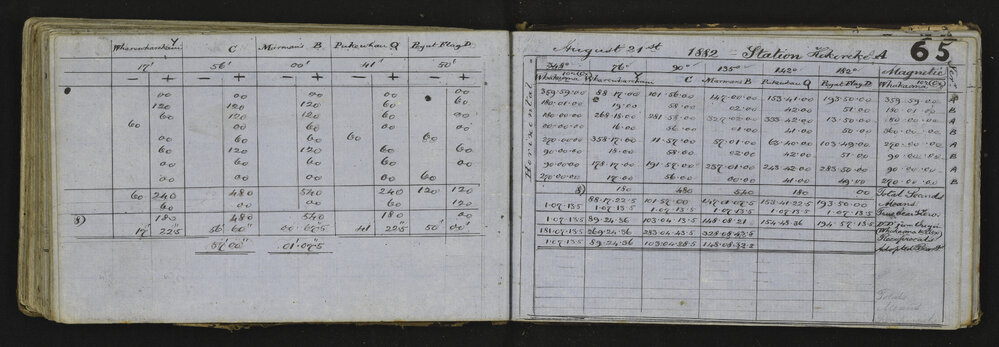 Y
Wharewharekaui C Morman's B Pukewhau Q Pegat Flag D
17' 56' 00' 41' 50'
− + − + − + − + − +
00 00 00 00 00
120 120 120 60 60
60 120 120 60 00
60 00 60 00 60
00 60 60 60 60
60 120 120 60 60
00 60 60 00 00
00 00 00 00 60
60 240 480 540 240 120 120
60 00 60 00
8) 180 480 540 180 00
17' 22".5 56' 60" 00' 67".5 41' 22".5 50' 00"
57' 00" 01'.07".5
August 21st 1882 = Station A
65
348° 76° 90° 135° 142° 182° Magnetic
Whakaoma Wharewharekaui Y C Morman's B Pukewhau Q Pegat Flag D Whakaoma
Horizontal
359·59·00 88·17·00 101·56·00 147·00·00 153·41·00 193·50·00 359·59·00 A
180·01·00 19·00 58·00 02·00 42·00 51·00 180·01·00 B
180·00·00 268·18·00 281·58·00 327·02·00 333·42·00 13·50·00 180·00·00 A
00·00·00 16·00 56·00 01·00 41·00 50·00 360·00·00 B
270·00·00 358·17·00 11·57·00 57·01·00 63·40·00 103·49·00 270·00·00 A
90·00·00 18·00 58·00 02·00 42·00 51·00 90·00·00 B
90·00·00 178·17·00 191·57·00 237·01·00 243·42·00 283·50·00 90·00·00 A
270·00·00 17·00 56·00 00·00 41·00 49·00 270·00·00 B
8) 180 480 540 180 00 Total Seconds
88·17·22·5 101·57·00 147·01·07·5 153·41·22·5 193·50·00 Means
1·07·13·5 1·07·13·5 1·07·13·5 1·07·13·5 1·07·13·5 1·07·13·5
1·07·13·5 89·24·36 103·04·13·5 148·08·21 154·48·36 194·57·13·5
181·07·13·5 269·24·36 283·04·43·5 328·08·43·5 Reciprocals
1·07·13·5 89·24·36 103·04·28·5 148·08·32·2 Adopted
Totals
Means